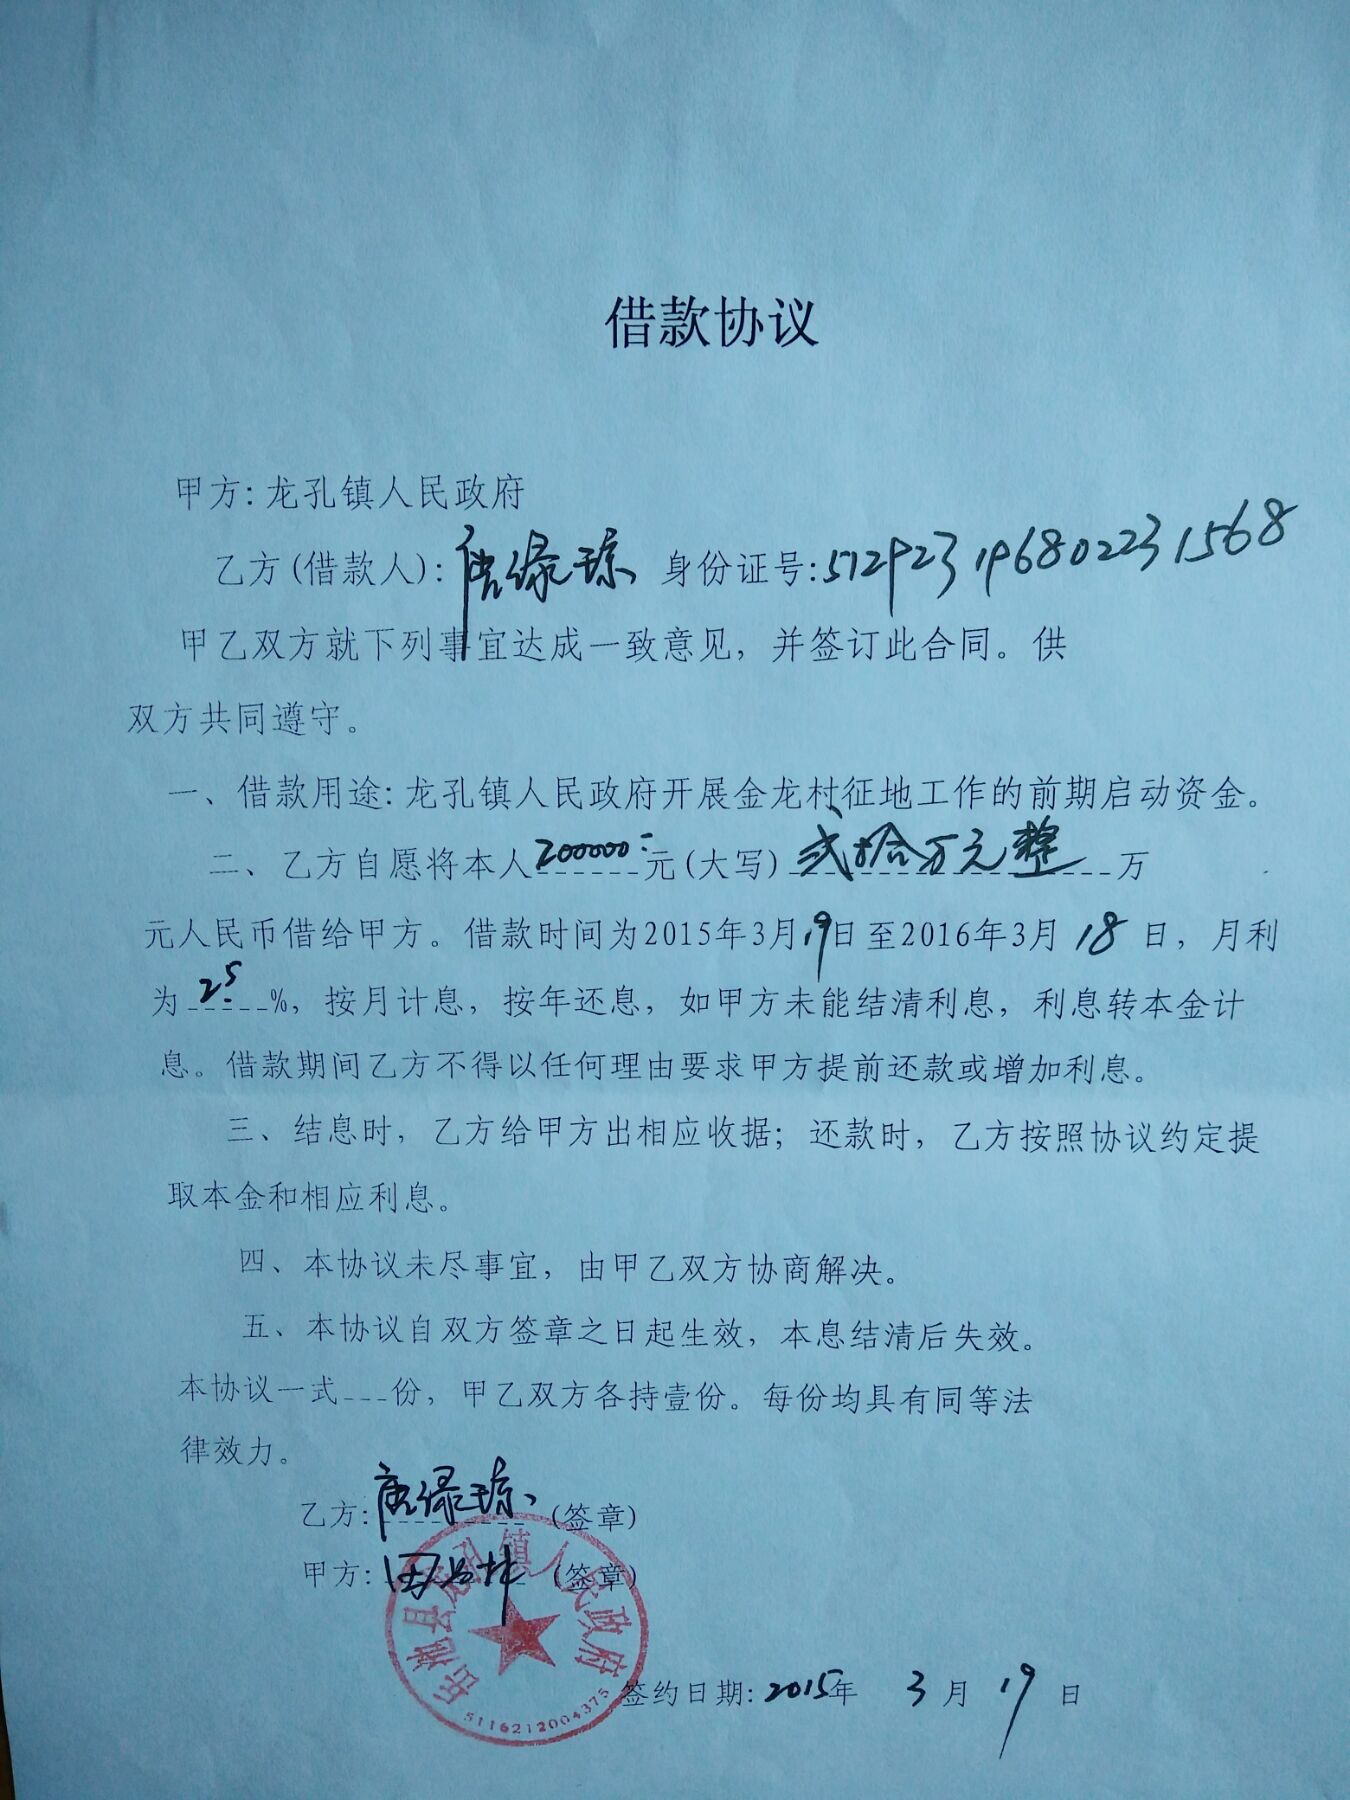 借款协议
甲方:龙孔镇人民政府
乙方(借款人):唐绿琼 身份证号:512923196802231568
甲乙双方就下列事宜达成一致意见，并签订此合同。供
双方共同遵守。
一、借款用途:龙孔镇人民政府开展金龙村征地工作的前期启动资金。
二、乙方自愿将本人200000元(大写)贰拾万元整万
元人民币借给甲方。借款时间为2015年3月19日至2016年3月18日，月利
为2.5%，按月计息，按年还息，如甲方未能结清利息，利息转本金计
息。借款期间乙方不得以任何理由要求甲方提前还款或增加利息。
三、结息时，乙方给甲方出相应收据；还款时，乙方按照协议约定提
取本金和相应利息。
四、本协议未尽事宜，由甲乙双方协商解决。
五、本协议自双方签章之日起生效，本息结清后失效。
本协议一式---份，甲乙双方各持壹份。每份均具有同等法
律效力。
乙方:唐绿琼 (签章)
甲方: (签章)
岳池县龙孔镇人民政府
5116212004375
签约日期:2015年 3月 19日